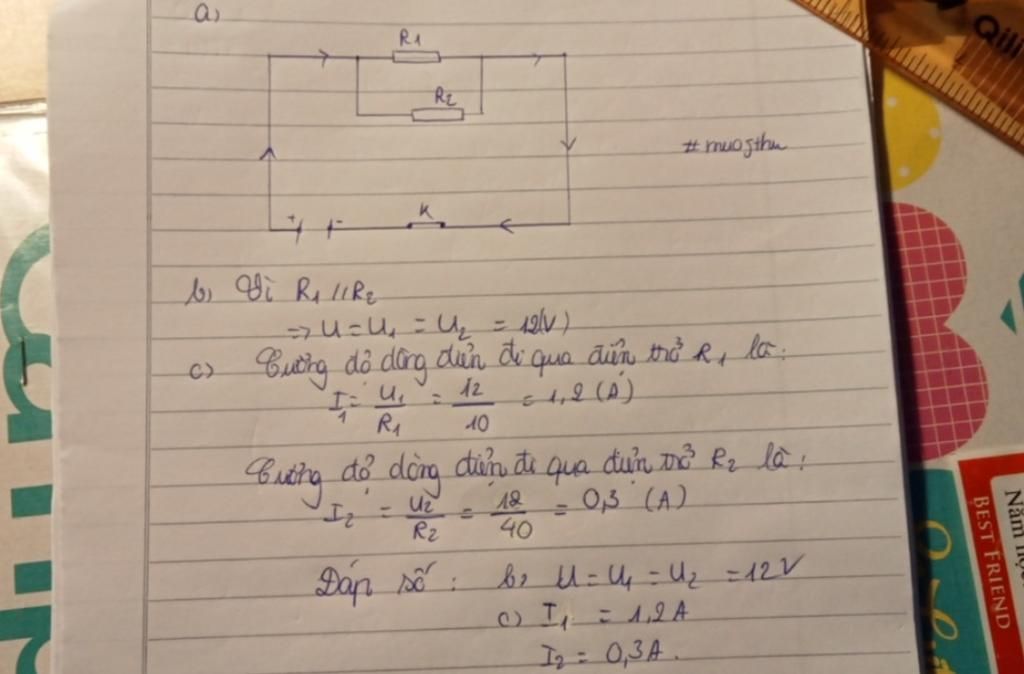 a,
R1
R2
#muo5thu
+ -
K
b, Vì R1 // R2
=> U = U1 = U2 = 12(V)
c) Cường độ dòng điện đi qua điện trở R1 là:
I1 = U1/R1 = 12/10 = 1,2 (A)
Cường độ dòng điện đi qua điện trở R2 là:
I2 = U2/R2 = 12/40 = 0,3 (A)
Đáp số: b, U = U1 = U2 = 12V
c) I1 = 1,2A
I2 = 0,3A.
Qili
BEST FRIEND